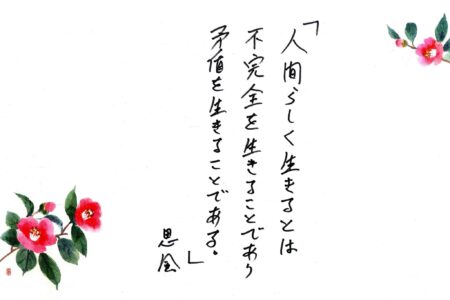 「人間らしく生きるとは
不完全を生きることであり
矛盾を生きることである。」
思金